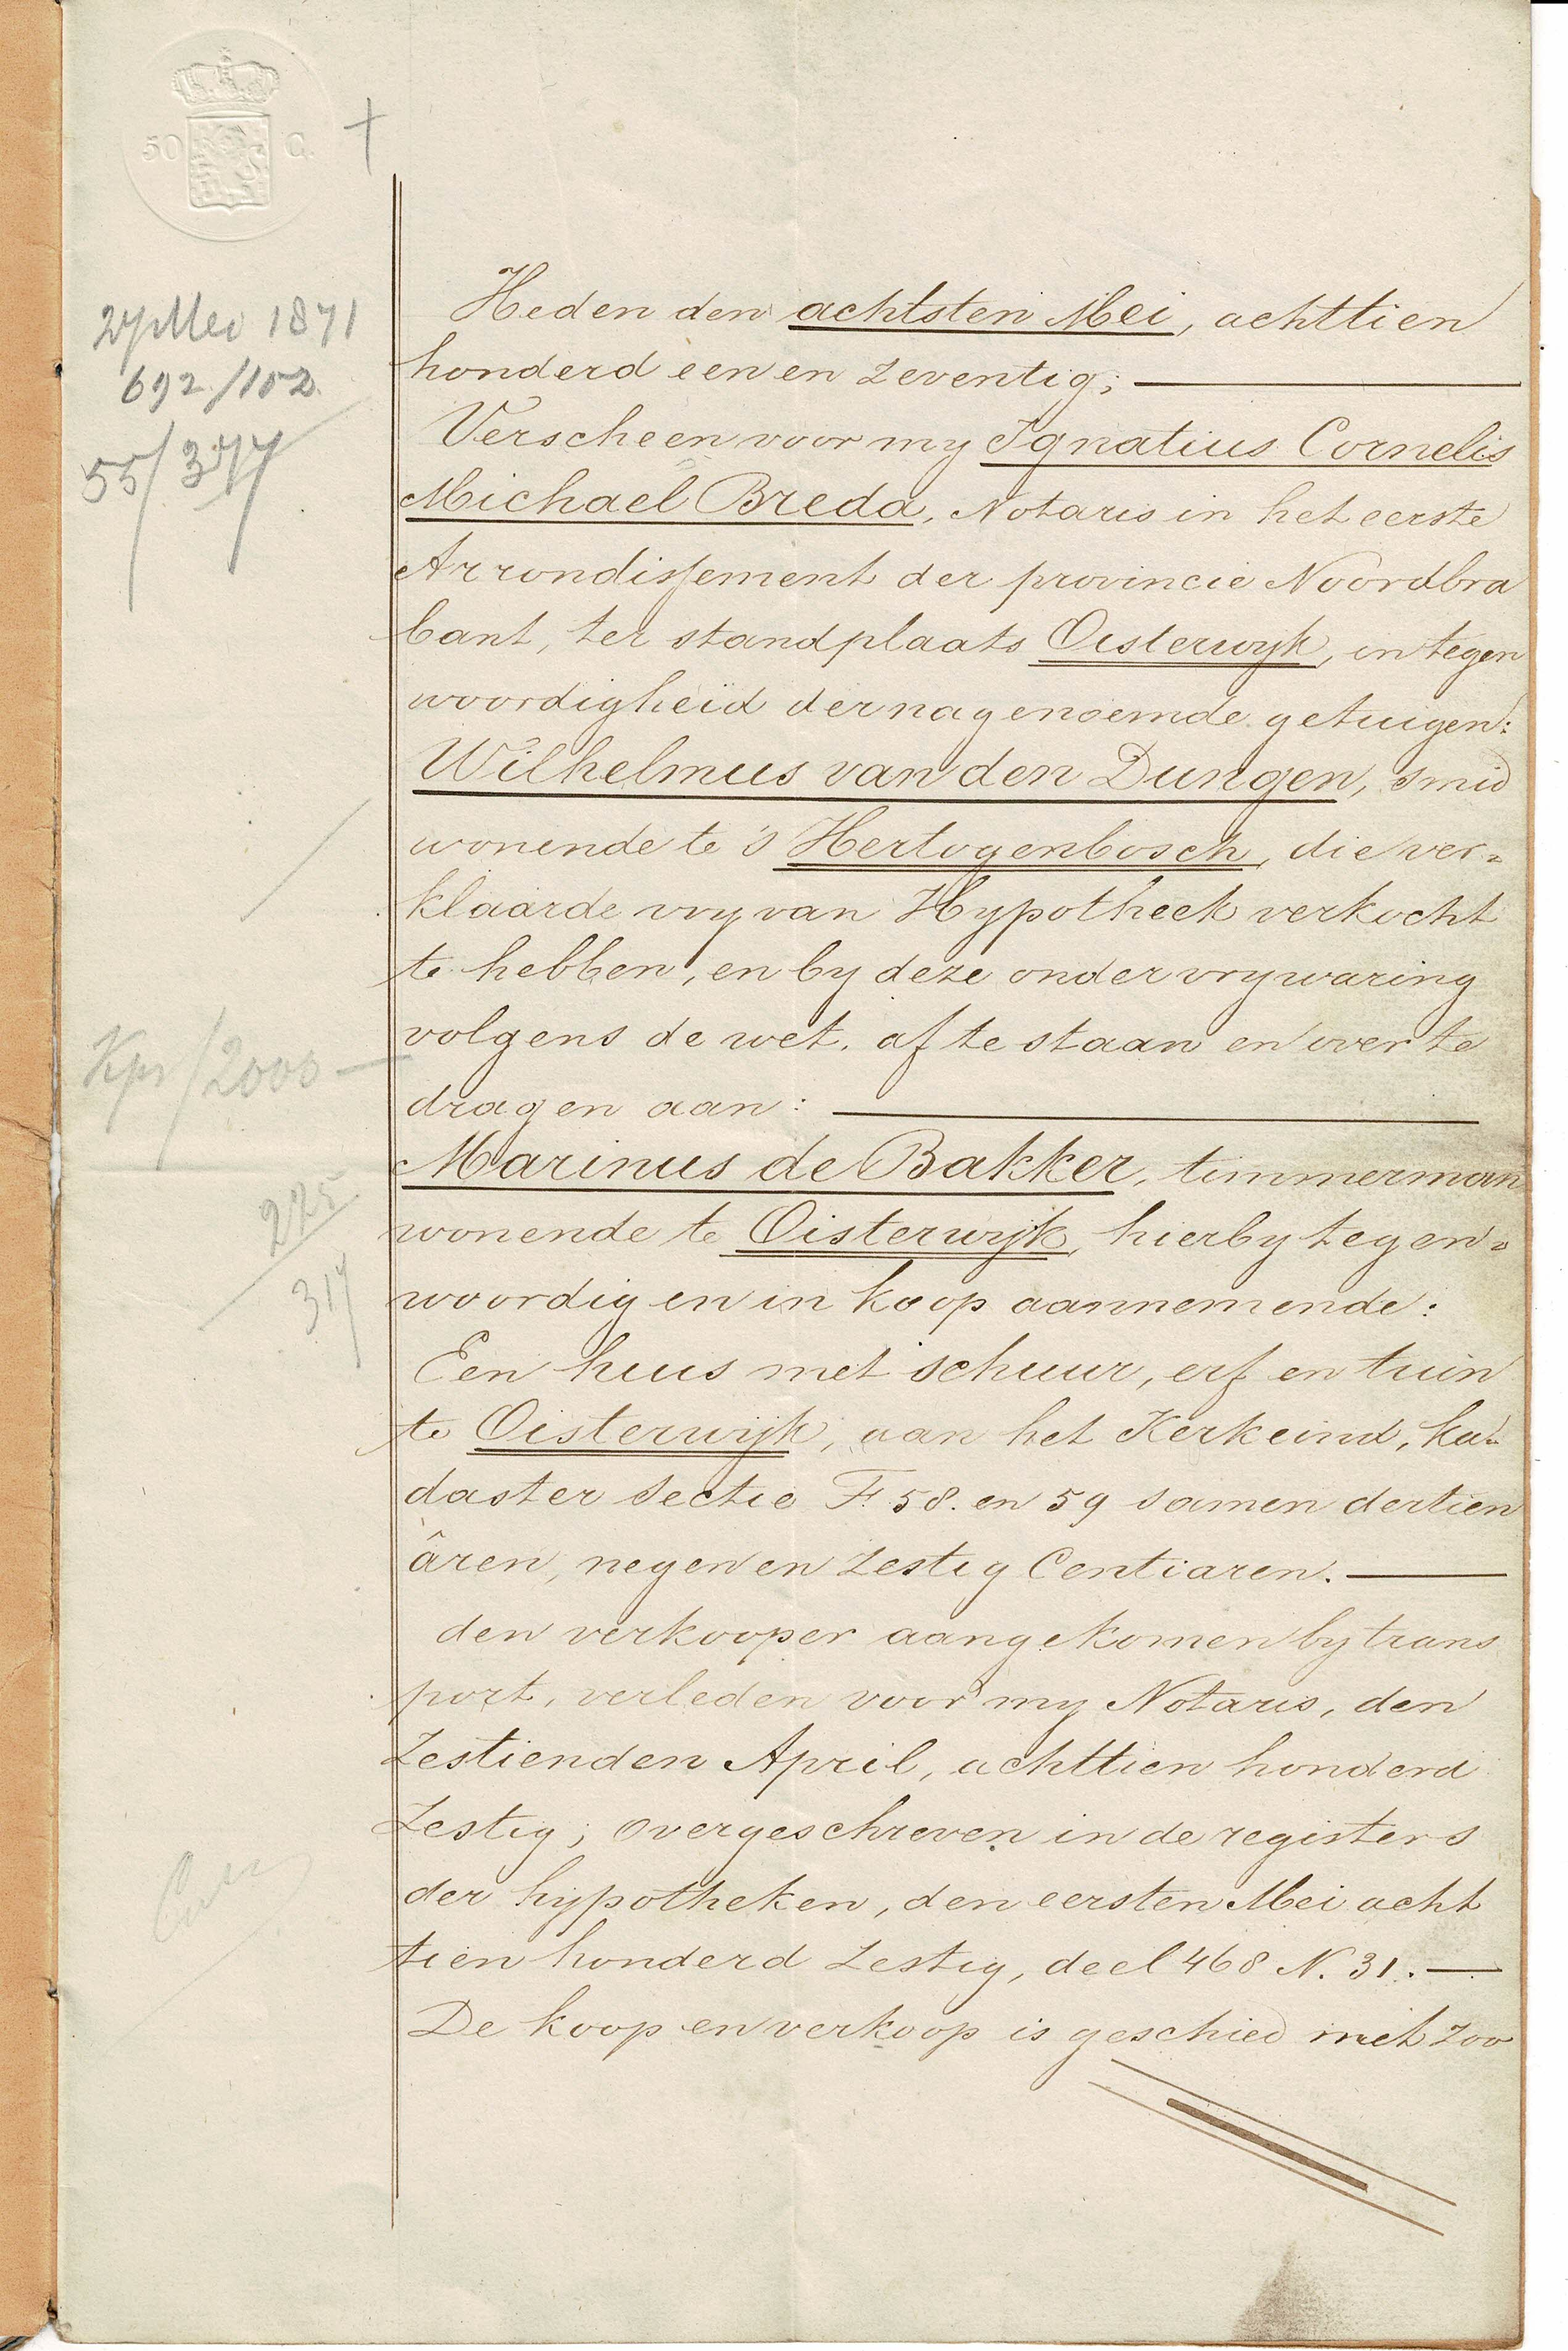 50 C.
27 Mei 1871
692/102
55/377
Kpr/2000 —
225
317
Heden den achtsten Mei, achttien
honderd een en zeventig;
Verscheen voor my Ignatius Cornelis
Michael Breda, Notaris in het eerste
Arrondissement der provincie Noordbra
bant, ter standplaats Oisterwyk, in tegen
woordigheid der nagenoemde getuigen:
Wilhelmus van den Dungen, smid
wonende te 's Hertogenbosch, die ver=
klaarde vry van Hypotheek verkocht
te hebben, en by deze onder vrywaring
volgens de wet, af te staan en over te
dragen aan:
Marinus de Bakker, timmerman
wonende te Oisterwijk, hierby tegen=
woordig en in koop aannemende:
Een huis met schuur, erf en tuin
te Oisterwijk, aan het Kerkeind, ka=
daster sectie F. 58. en 59 samen dertien
âren, negen en zestig Centiaren.
den verkooper aangekomen by trans
port, verleden voor my Notaris, den
Zestienden April, achttien honderd
Zestig; overgeschreven in de registers
der hypotheken, den eersten Mei acht
tien honderd Zestig, deel 468 N. 31.
De koop en verkoop is geschied met zoo